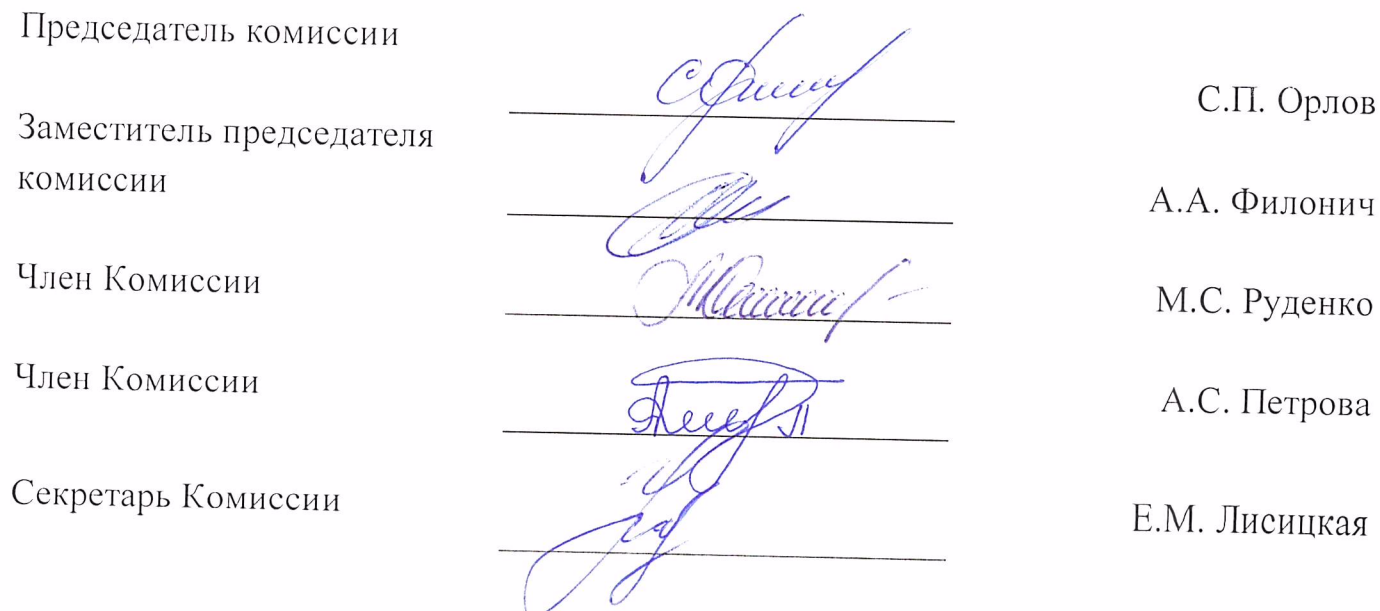 Председатель комиссии
С.П. Орлов
Заместитель председателя
комиссии
А.А. Филонич
Член Комиссии
М.С. Руденко
Член Комиссии
А.С. Петрова
Секретарь Комиссии
Е.М. Лисицкая